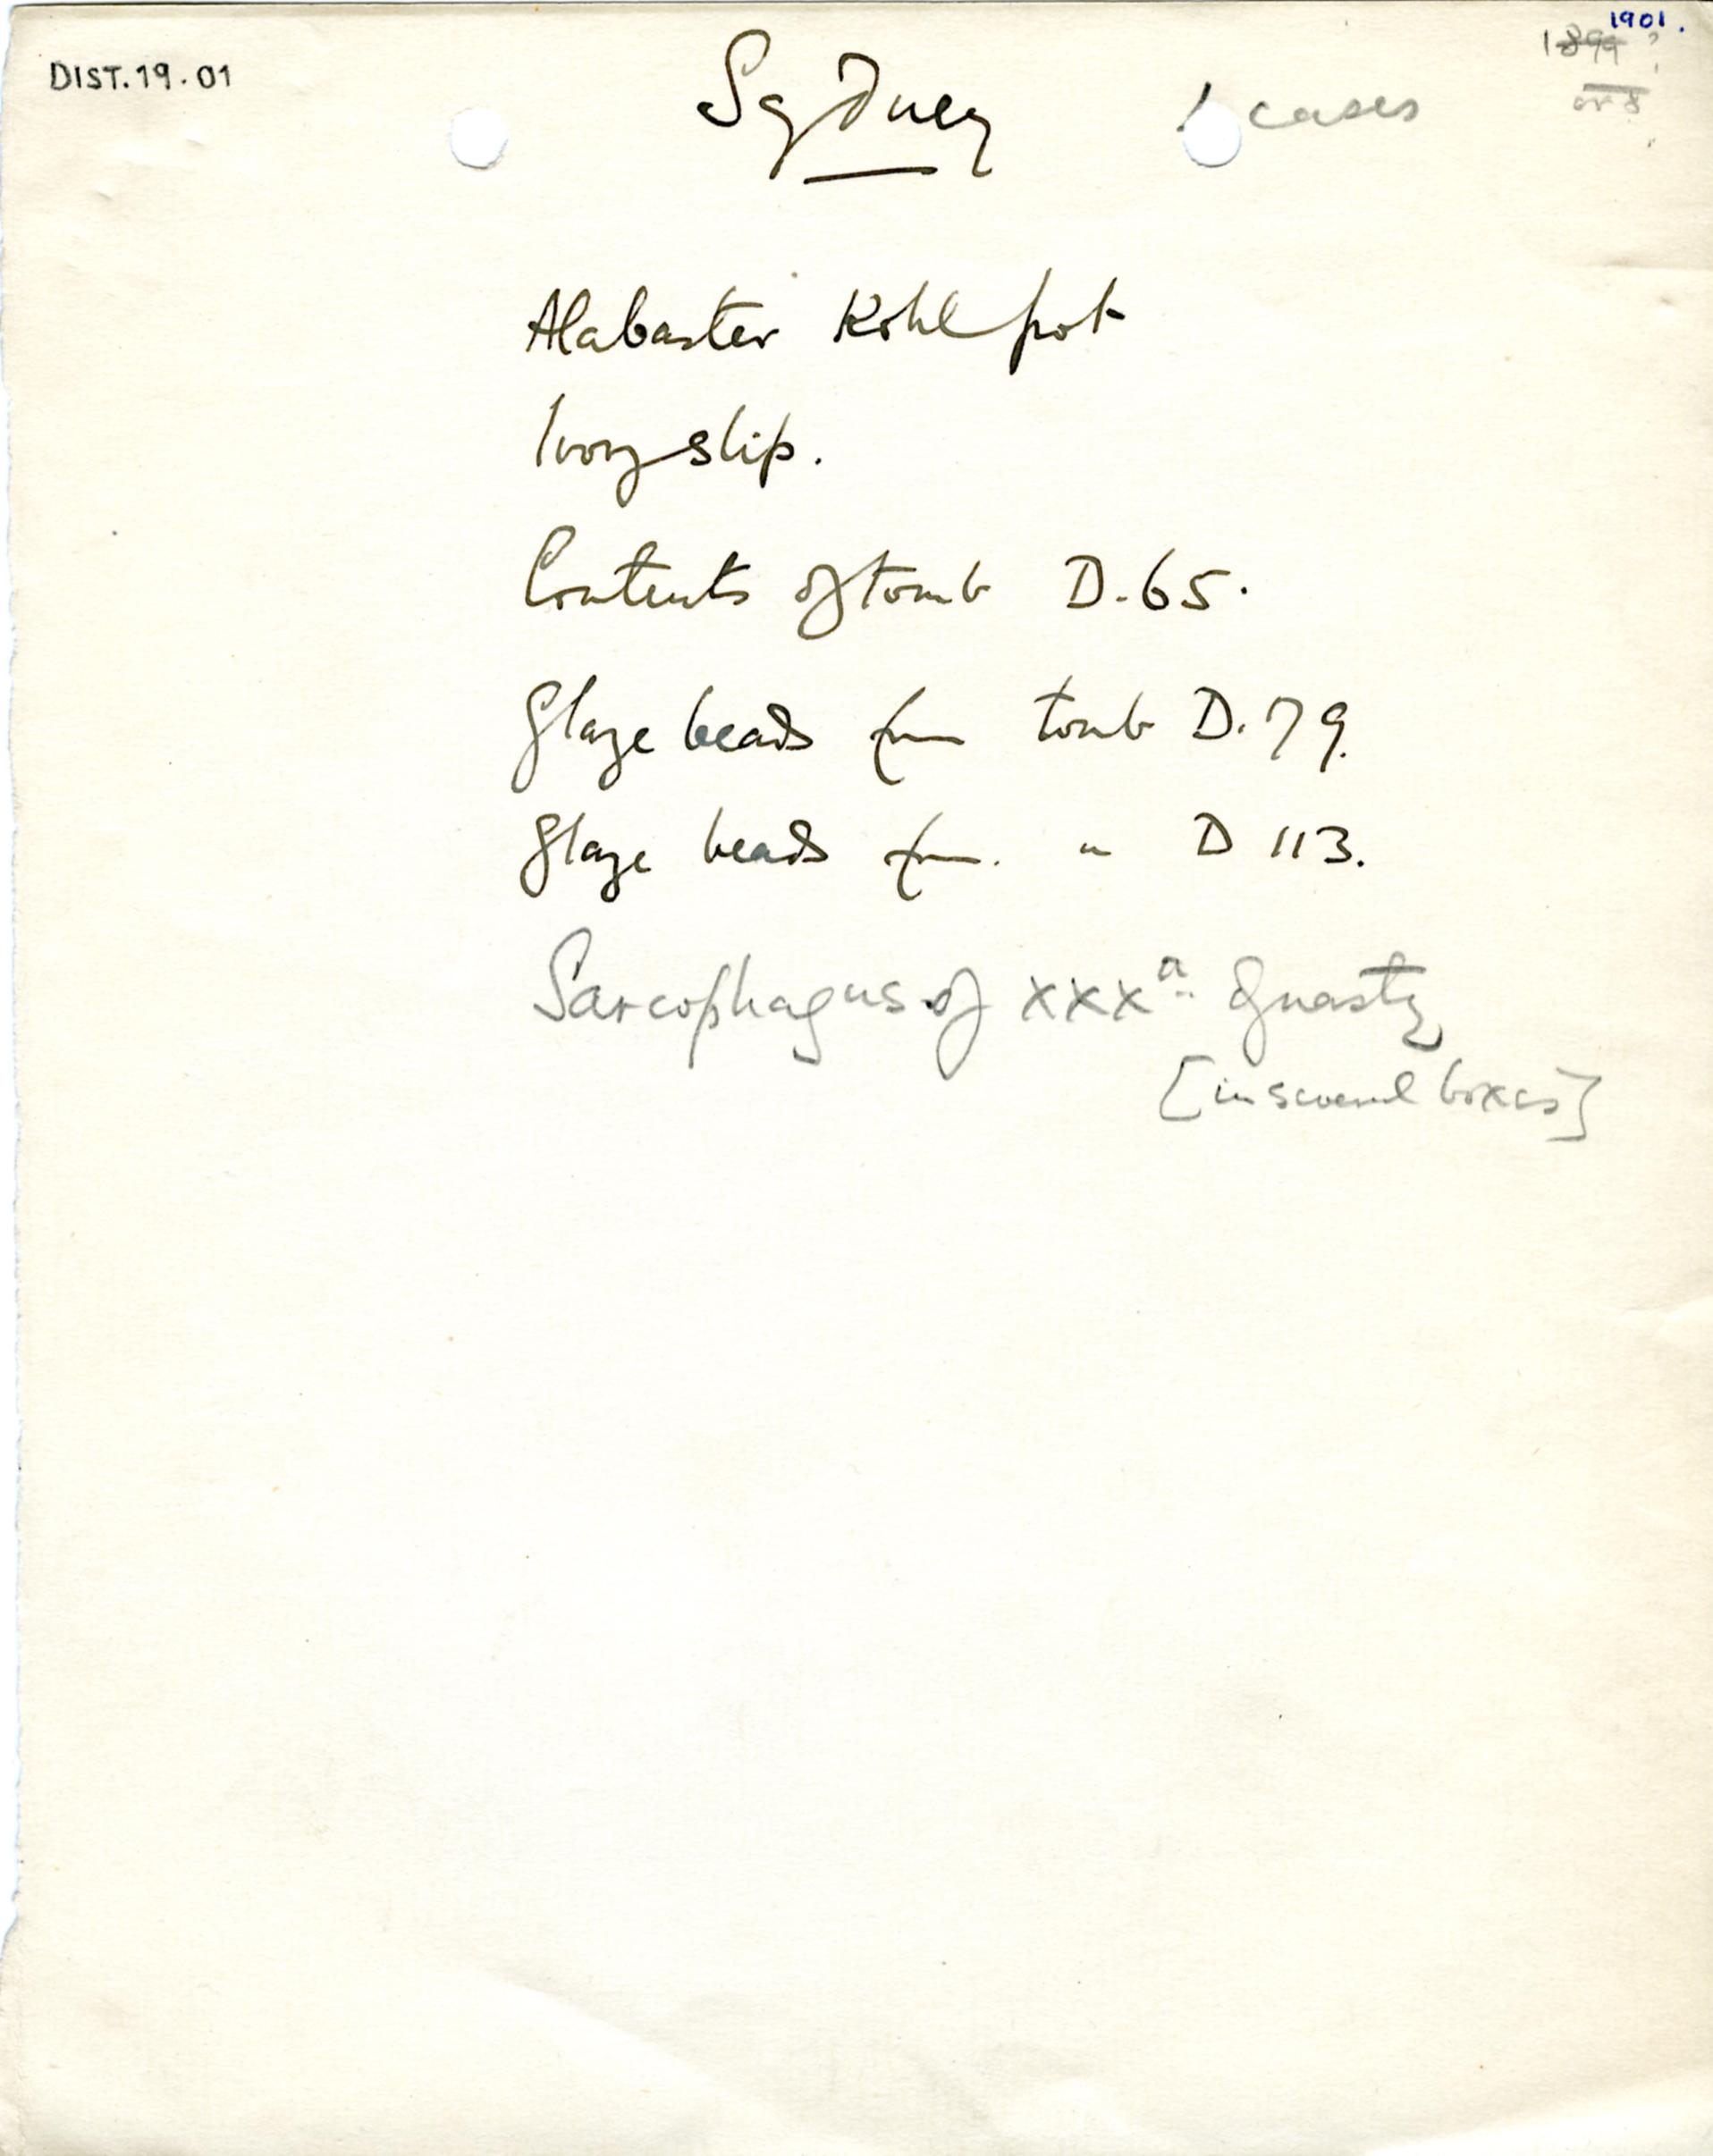 1901.
DIST. 19.01
1899 ?
or 8
Sydney
cases
Alabaster Kohl pot
Ivory slip.
Contents of tomb D.65.
Glaze beads from tomb D.79.
Glaze beads from. " D 113.
Sarcophagus of XXX dynasty
[in several boxes]